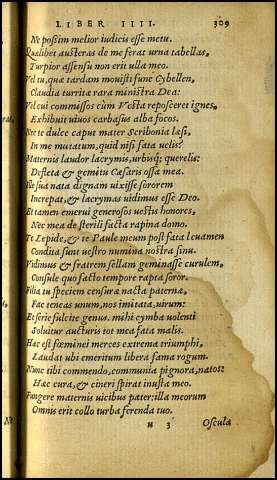 LIBER IIII. 309
Ne possim melior iudicis esse metu.
Qualibet austeras de me ferat urna tabellas,
Turpior assensu non erit ulla meo.
Vel tu, quæ tardam mouisti fune Cybellen,
Claudia turritæ rara ministra Deæ:
Vel cui commissos cùm Vesta reposceret ignes,
Exhibuit uiuos carbasus alba focos.
Nec te dulce caput mater Scribonia læsi,
In me mutatum, quid nisi fata uelis?
Maternis laudor lacrymis, urbisq; querelis:
Defleta & gemitu Cæsaris ossa mea.
Ille sua nata dignam uixisse sororem
Increpat, & lacrymas uidimus esse Deo.
Et tamen emerui generosos uestis honores,
Nec mea de sterili facta rapina domo.
Te Lepide, & te Paule meum post fata leuamen
Condita sunt uestro numina nostra sinu.
Vidimus & fratrem sellam geminasse curulem,
Consule quo facto tempore rapta soror.
Filia tu specimen censuræ nacta paternæ,
Fac teneas unum, nos imitata, uirum:
Et serie fulcite genus. mihi cymba uolenti
Soluitur aucturis tot mea fata malis.
Hæc est fœminei merces extrema triumphi,
Laudat ubi emeritum libera fama rogum.
Nunc tibi commendo, communia pignora, natos:
Hæc cura, & cineri spirat inusta meo.
Fungere maternis uicibus pater: illa meorum
Omnis erit collo turba ferenda tuo.
H 3 Oscula